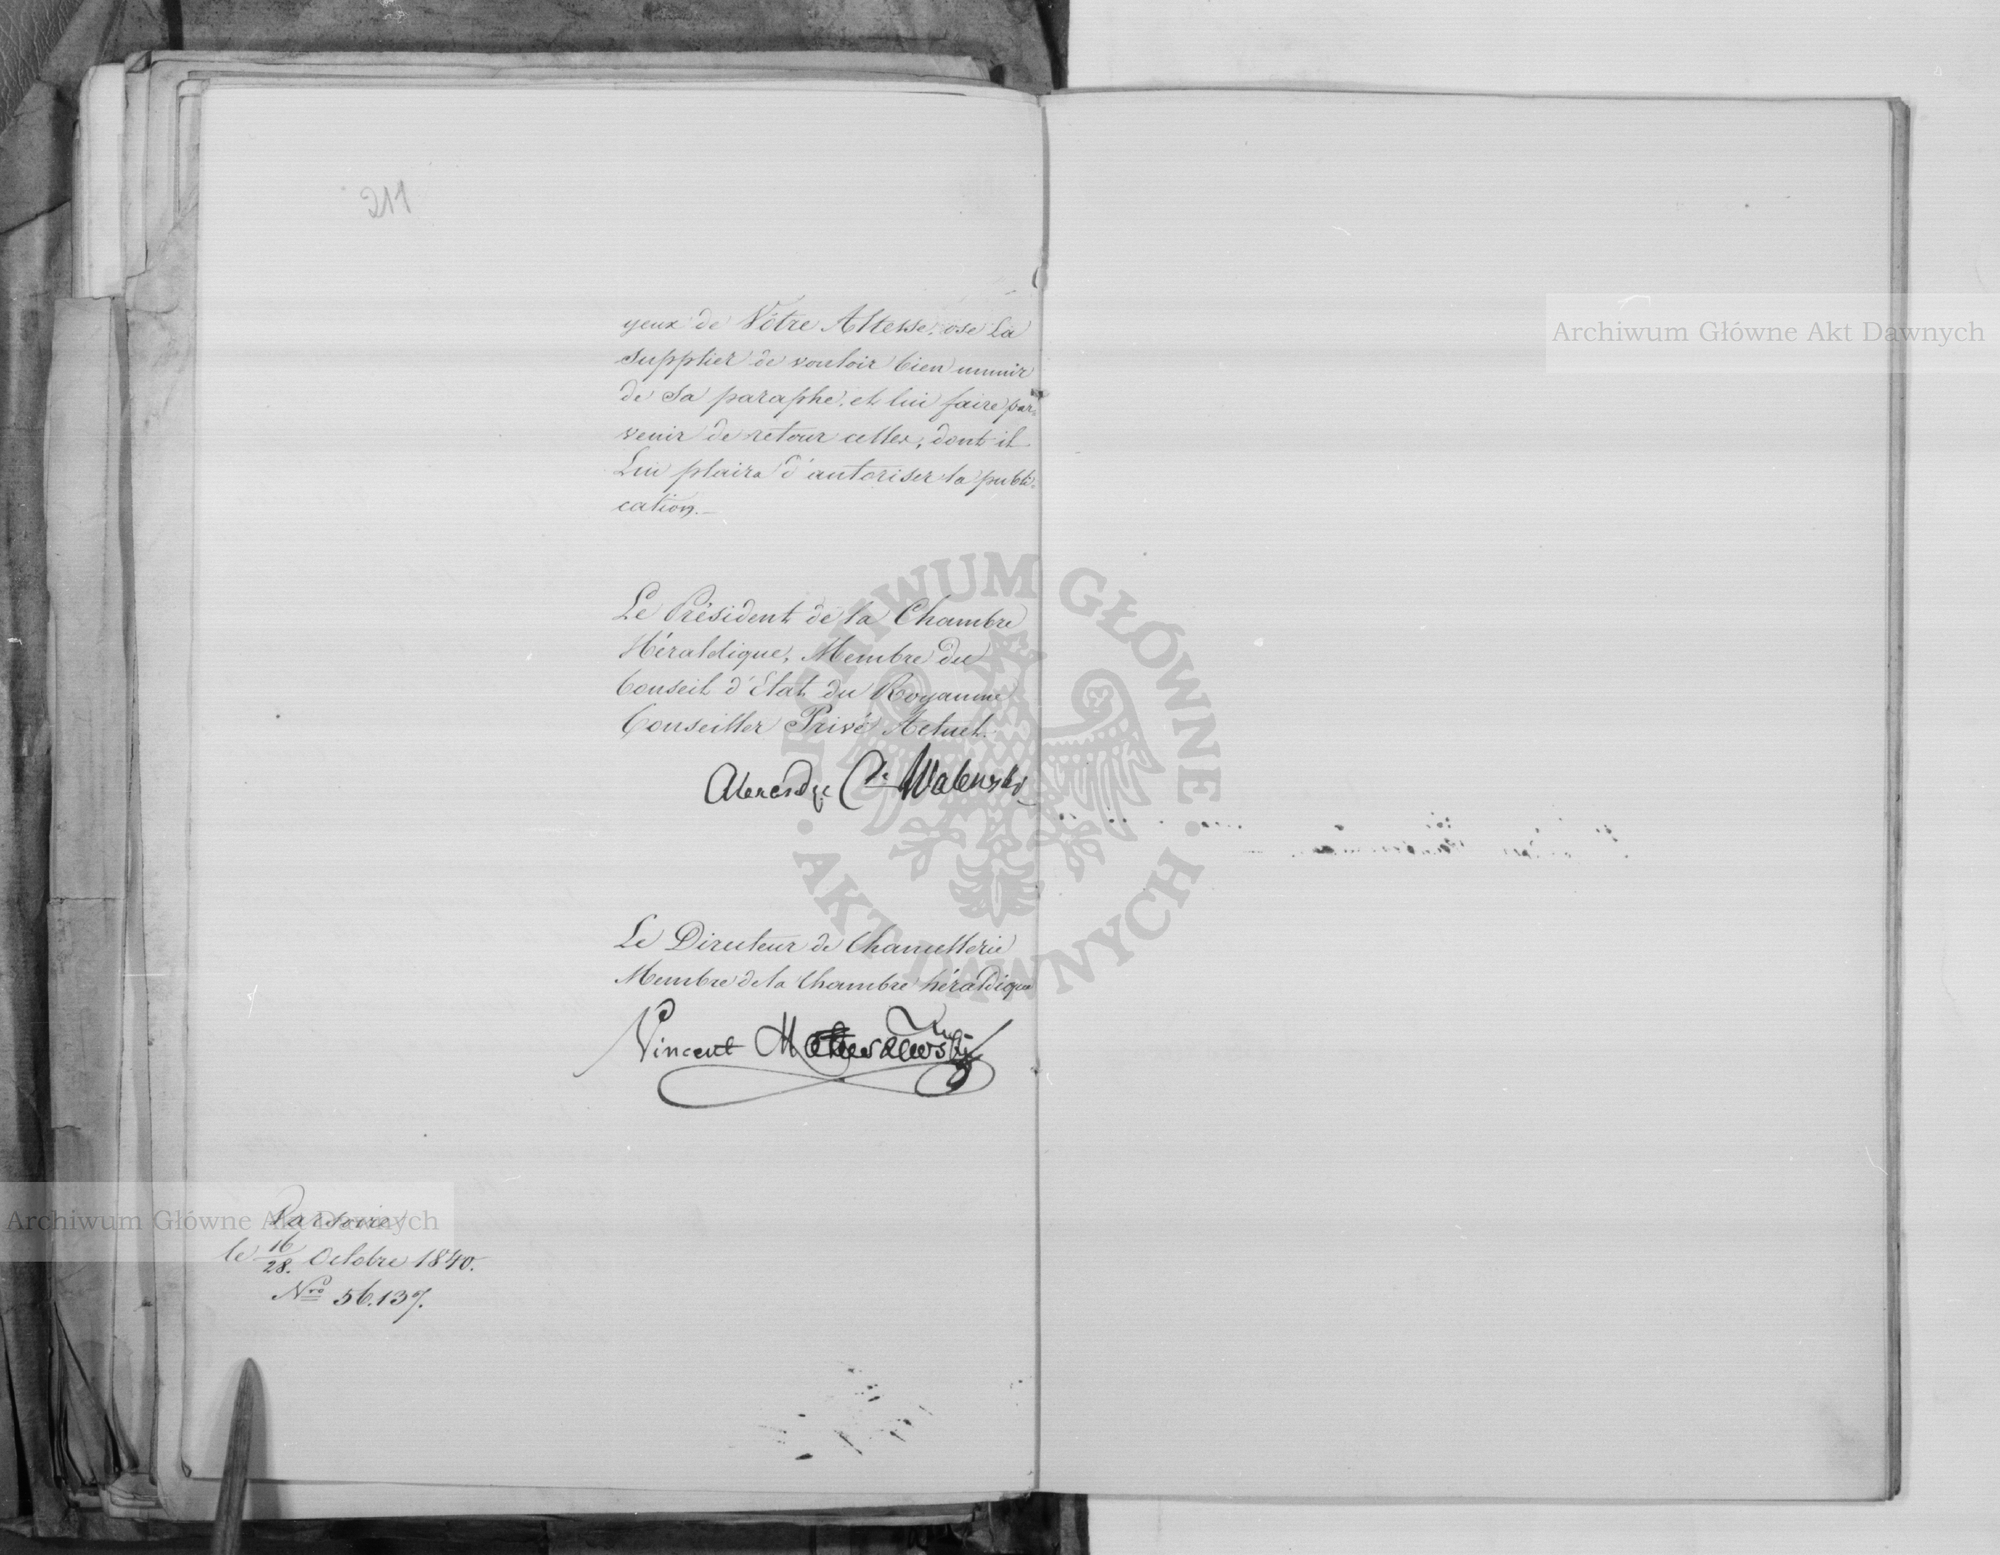 211
yeux de Vôtre Altesse, ose La
supplier de vouloir bien munir
de Sa paraphe, et lui faire par-
venir de retour celles, dont il
Lui plaira d'autoriser la publi-
cation.—
Le Président de la Chambre
Héraldique, Membre du
Conseil d'Etat du Royaume
Conseiller Privé Actuel.
Alexandre Cte Walewski
Le Directeur de Chancellerie
Membre de la Chambre héraldique
Vincent
Varsovie
le 16/28. Octobre 1840.
Nro 56.137.
Archiwum Główne Akt Dawnych
Archiwum Główne Akt Dawnych
ARCHIWUM GŁÓWNE
AKT DAWNYCH